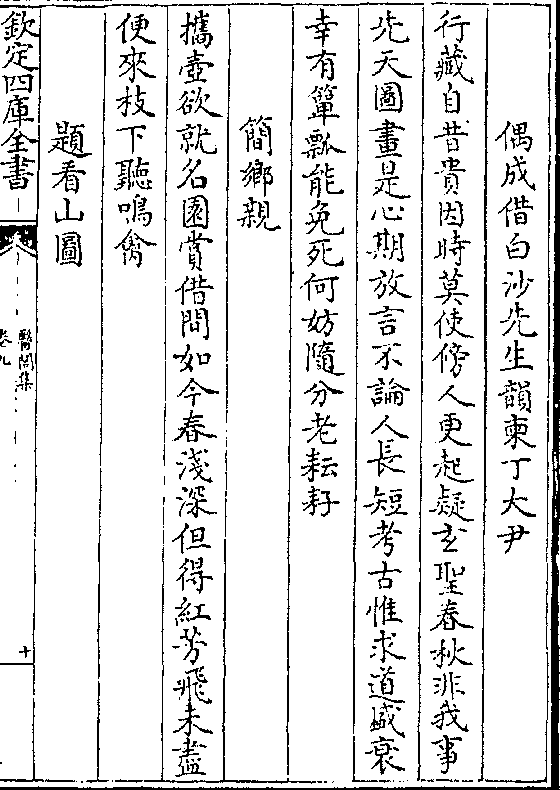 偶成借白沙先生韻柬丁大尹
行藏自昔貴因時莫使傍人更起疑玄聖春秋非我事
先天圖畫是心期放言不論人長短考古惟求道盛衰
幸有簞瓢能免死何妨隨分老耘耔
簡鄉親
攜壺欲就名園賞借問如今春淺深但得紅芳飛未盡
便來枝下聽鳴禽
題看山圖
欽定四庫全書
醫閭集
卷九
十